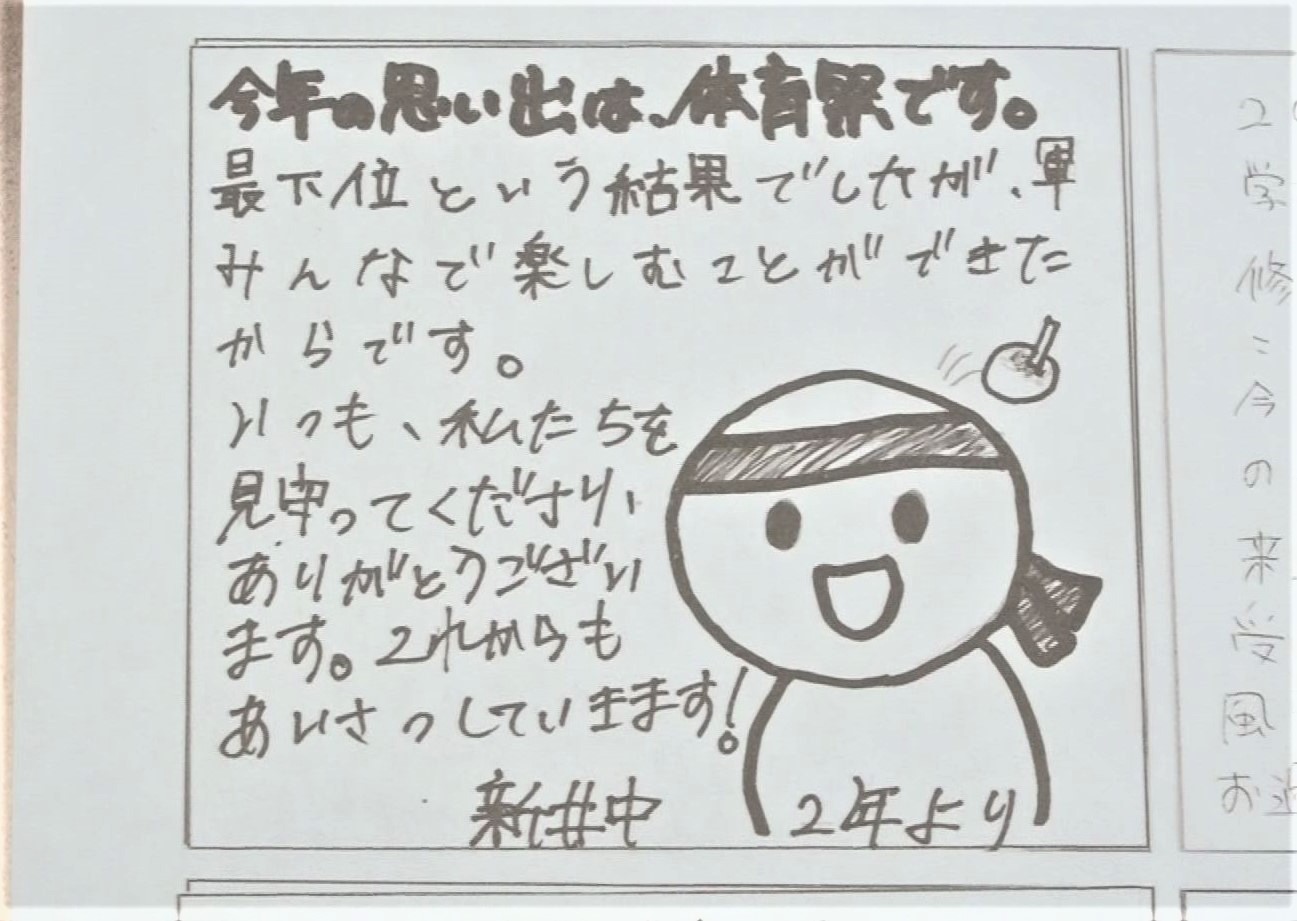 今年の思い出は、体育祭です。
最下位という結果でしたが、軍
みんなで楽しむことができた
からです。
いつも、私たちを
見守ってくださり、
ありがとうござい
ます。これからも
あいさつしていきます!
新井中 2年より
2
学
修
ミ
今
の
来
受
風
お